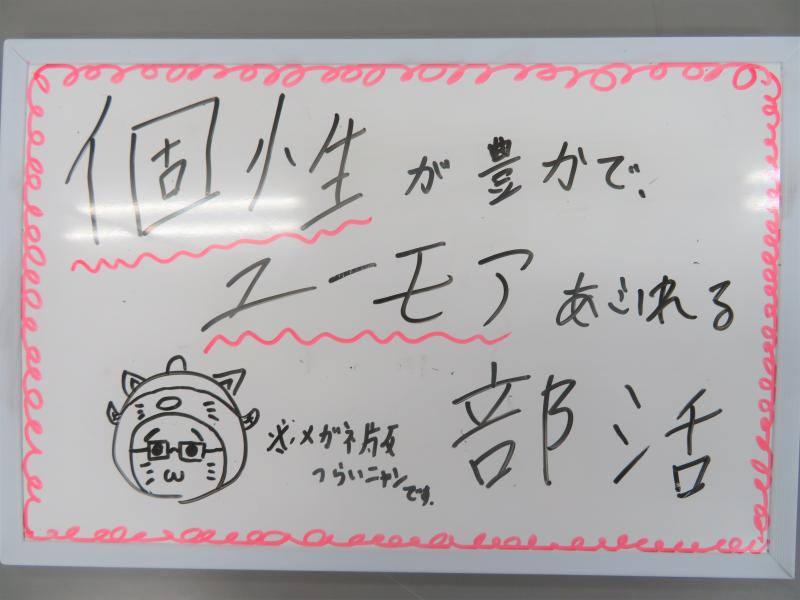 個性が豊かで、
ユーモアあふれる
部活
※メガネ版
つらいニャンです。